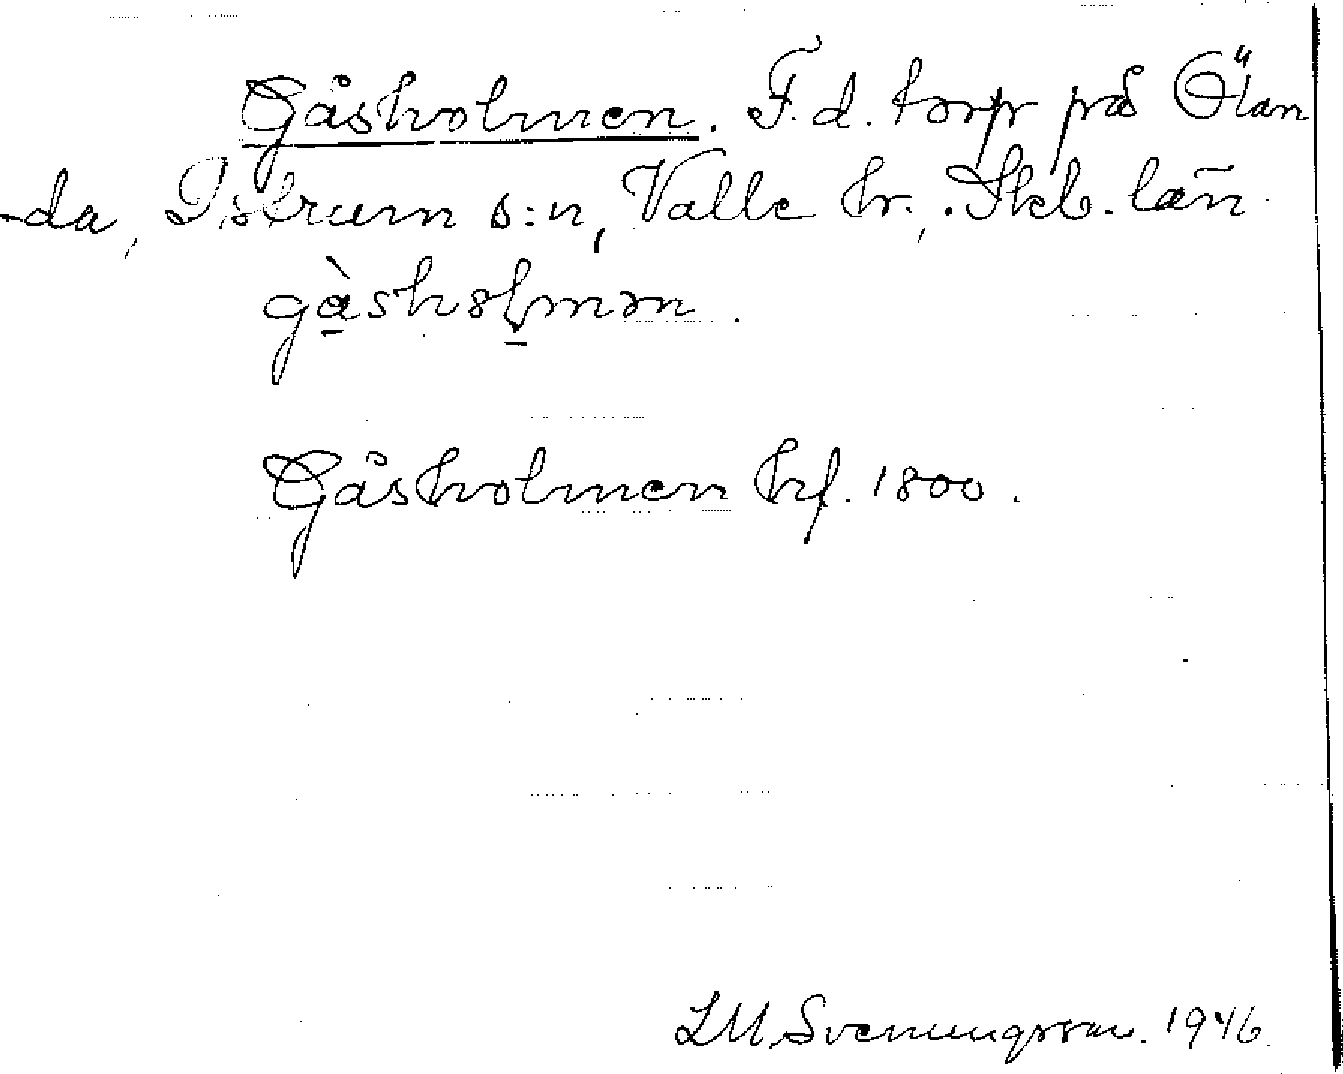 Gåsholmen. F. d. torp på Ölan
da, Istrum s:n, Valle hr., Skb. län.
gàsholmən.
Gåsholmen hf. 1800.
LM Svenungsson. 1946.